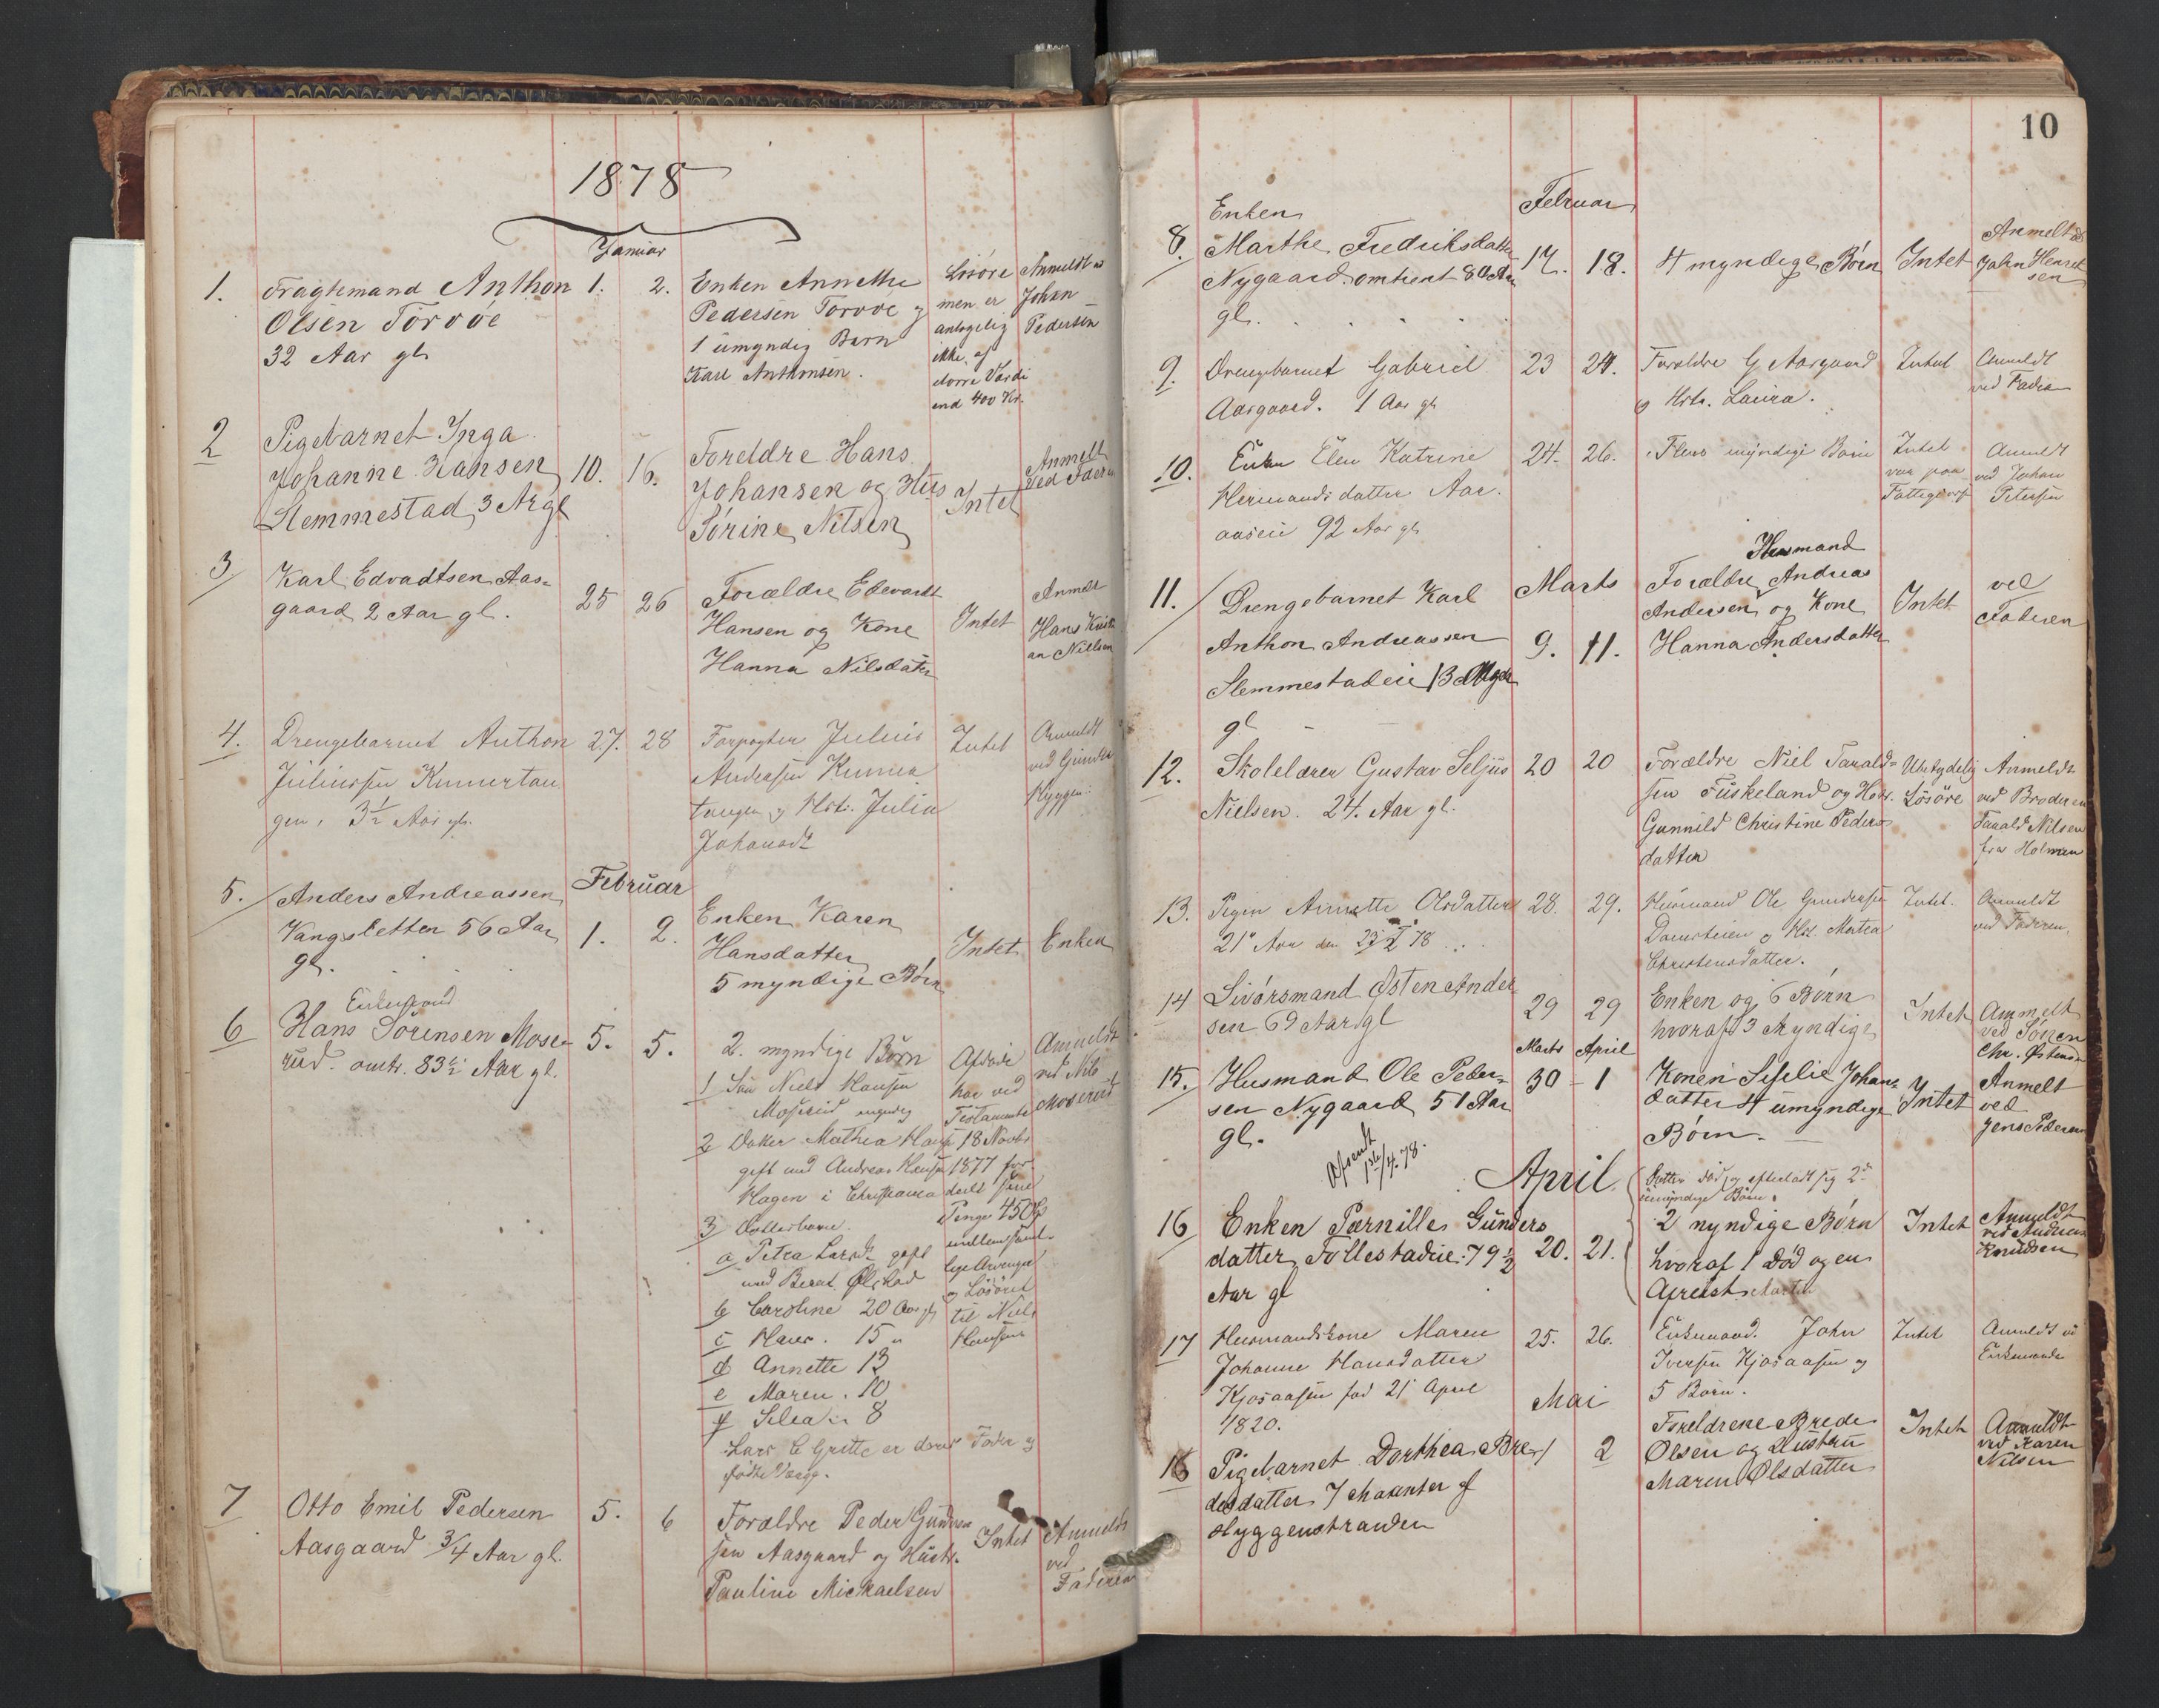 1878
Januar
1. Fragtemand Anthon 1. 2. Enken Annethe Lösöre Anmeldt ved
Olsen Torvöe Pedersen Torvöe og men er Johan
32 Aar gl. 1 umyndig Barn antagelig Pedersen
Karl Anthonsen. ikke af
större Værdi
end 400 Kr.
2 Pigebarnet Inga
Johanne Hansen 10. 16. Foreldre Hans Anmelt
Slemmestad, 3 Ar gl Johansen og Hus Intet ved Faern
Sörine Nilsen
3 Karl Edvadtsen Aas-
gaard 2 Aar gl. 25 26 Forældre Edevardt Anmelt
Hansen og Kone Intet Hans Kristi
Hanna Nilsdater an Nielsen
4. Drengebarnet Anthon 27. 28 Forpagter Julius Intet Anmeldt
Juliussen Kinnertan ved Gunder
gen, 3½ Aar gl. tangen og Hst. Julia Hyggen
Johansdt
Februar
5. Anders Andreassen
Vangsletten 56 Aar 1. 2. Enken Karen
gl. Hansdatter Intet Enken
5 myndige Börn
Enkemand
6 Hans Sörensen Mose- 5. 5. 2. myndige Börn Afdöde Anmeldt
rud. omtr. 83½ Aar gl. 1 Sön Niels Hansen har ved ved Nils
Moserud myndig Testamente Moserud
2 Datter Mathea Hans 18 Novbr
gift med Andreas Hansen 1877 for
Hagen i Christiania delt sine
3 Datterbarn. Penge 450
a Petra Larsdt gift mellem samt
med Bernt Ølstad lige Arvinger
b Caroline 20 Aar gl og Lösöret
c Hans. 15 " til Niels
d Annette 13 Hansen
e Maren. 10
f Silea 8
Lars E Gritte er deres Fader og
födte Værge.
7 Otto Emil Pedersen 5. 6 Forældre Peder Gunder
Aasgaard 3/4 Aar gl. sen Aasgaard og Hustr. Intet Anmeldt
Pauline Mickaelsen ved
Faderen
10
Februar
8. Enken
Marthe Fredriksdatter 17. 18. 4 myndige Börn Intet Anmelt ved
Nygaard omtrent 80 Aar John Henrik
gl. sen
9. Drengebarnet Gabriel 23 24. Foreldre G Aasgaard Intet Anmeldt
Aasgaard. 1 Aar gl. og Hstr. Laura. ved Faderen
10. Enken Elen Katrine 24. 26. Flere myndige Börn Intet Anmeldt
Hermandsdatter Aar var paa ved Johan
aasen 92 Aar gl. Fattigforsf Petersen
11. Marts Husmand
Drengebarnet Karl Forældre Andreas ved
Anthon Andreassen 9. 11. Andersen og Kone Intet Faderen
Slemmestadeie 13 Hanna Andersdatter
gl
12. Skolelærer Gustav Seljus 20 20 Forældre Niel Tarald- Ubetydelig Anmeldt
Nielsen. 24. Aar gl. sen Fiskeland og Hstr. Lösöre ved Broderen
Gunnild Christine Peders Tarald Nilsen
datter fra Holmen
13. Pigen Annette Olsdatter 28. 29. Husmand Ole Gundersen Intet. Anmeldt
21 Aar den 23/ 78 og Hst. Martea ved Faderen.
Christensdatter.
14 Livörsmand Østen Ander 29 29 Enken og 6 Börn Intet Anmelt
sen 69 Aar gl hvoraf 3 Myndige ved Sören
Chr. Østensen
Marts April
15. Husmand Ole Peder- 30 – 1 Konen Sifilie Johan- Intet Anmelt
sen Nygaard 51 Aar datter 4 umyndige ved
gl. Börn. Jens Pedersen
Afsendt
1ste/4.78.
April
Datter död og efterladt sig 2de
umyndige Börn.
16 Enken Pærnille Gunders 20. 21. 2 myndige Börn Intet Anmeldt
datter Follestadeie. 79½ hvoraf 1 Död og en ved Andreas
Aar gl Afreist Martin Knudsen
17 Husmandskone Maren 25. 26. Enkemand. John Intet Anmeldt ved
Johanne Hansdatter Iversen Kjosaasen og Enkemanden
Kjosaasen föd 21 April 5 Börn.
1820.
Mai
18 Pigebarnet Dorthea Bre 1 2 Foreldrene Brede Intet Anmeldt
desdatter 7 Maanter gl Olsen og Hustru ved Karen
Hyggenstranden Maren Olsdatter Nilsen